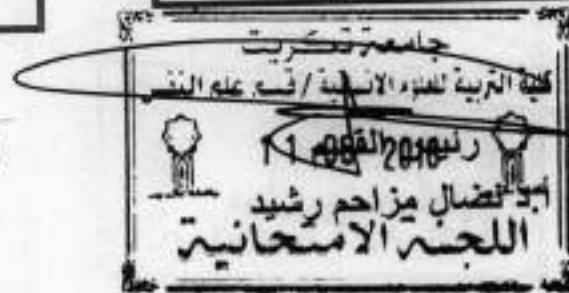 جامعة تكريت
كلية التربية للعلوم الانسانية / قسم علم النفس
رئيس القسم
نضال مزاحم رشيد
اللجنة الامتحانية